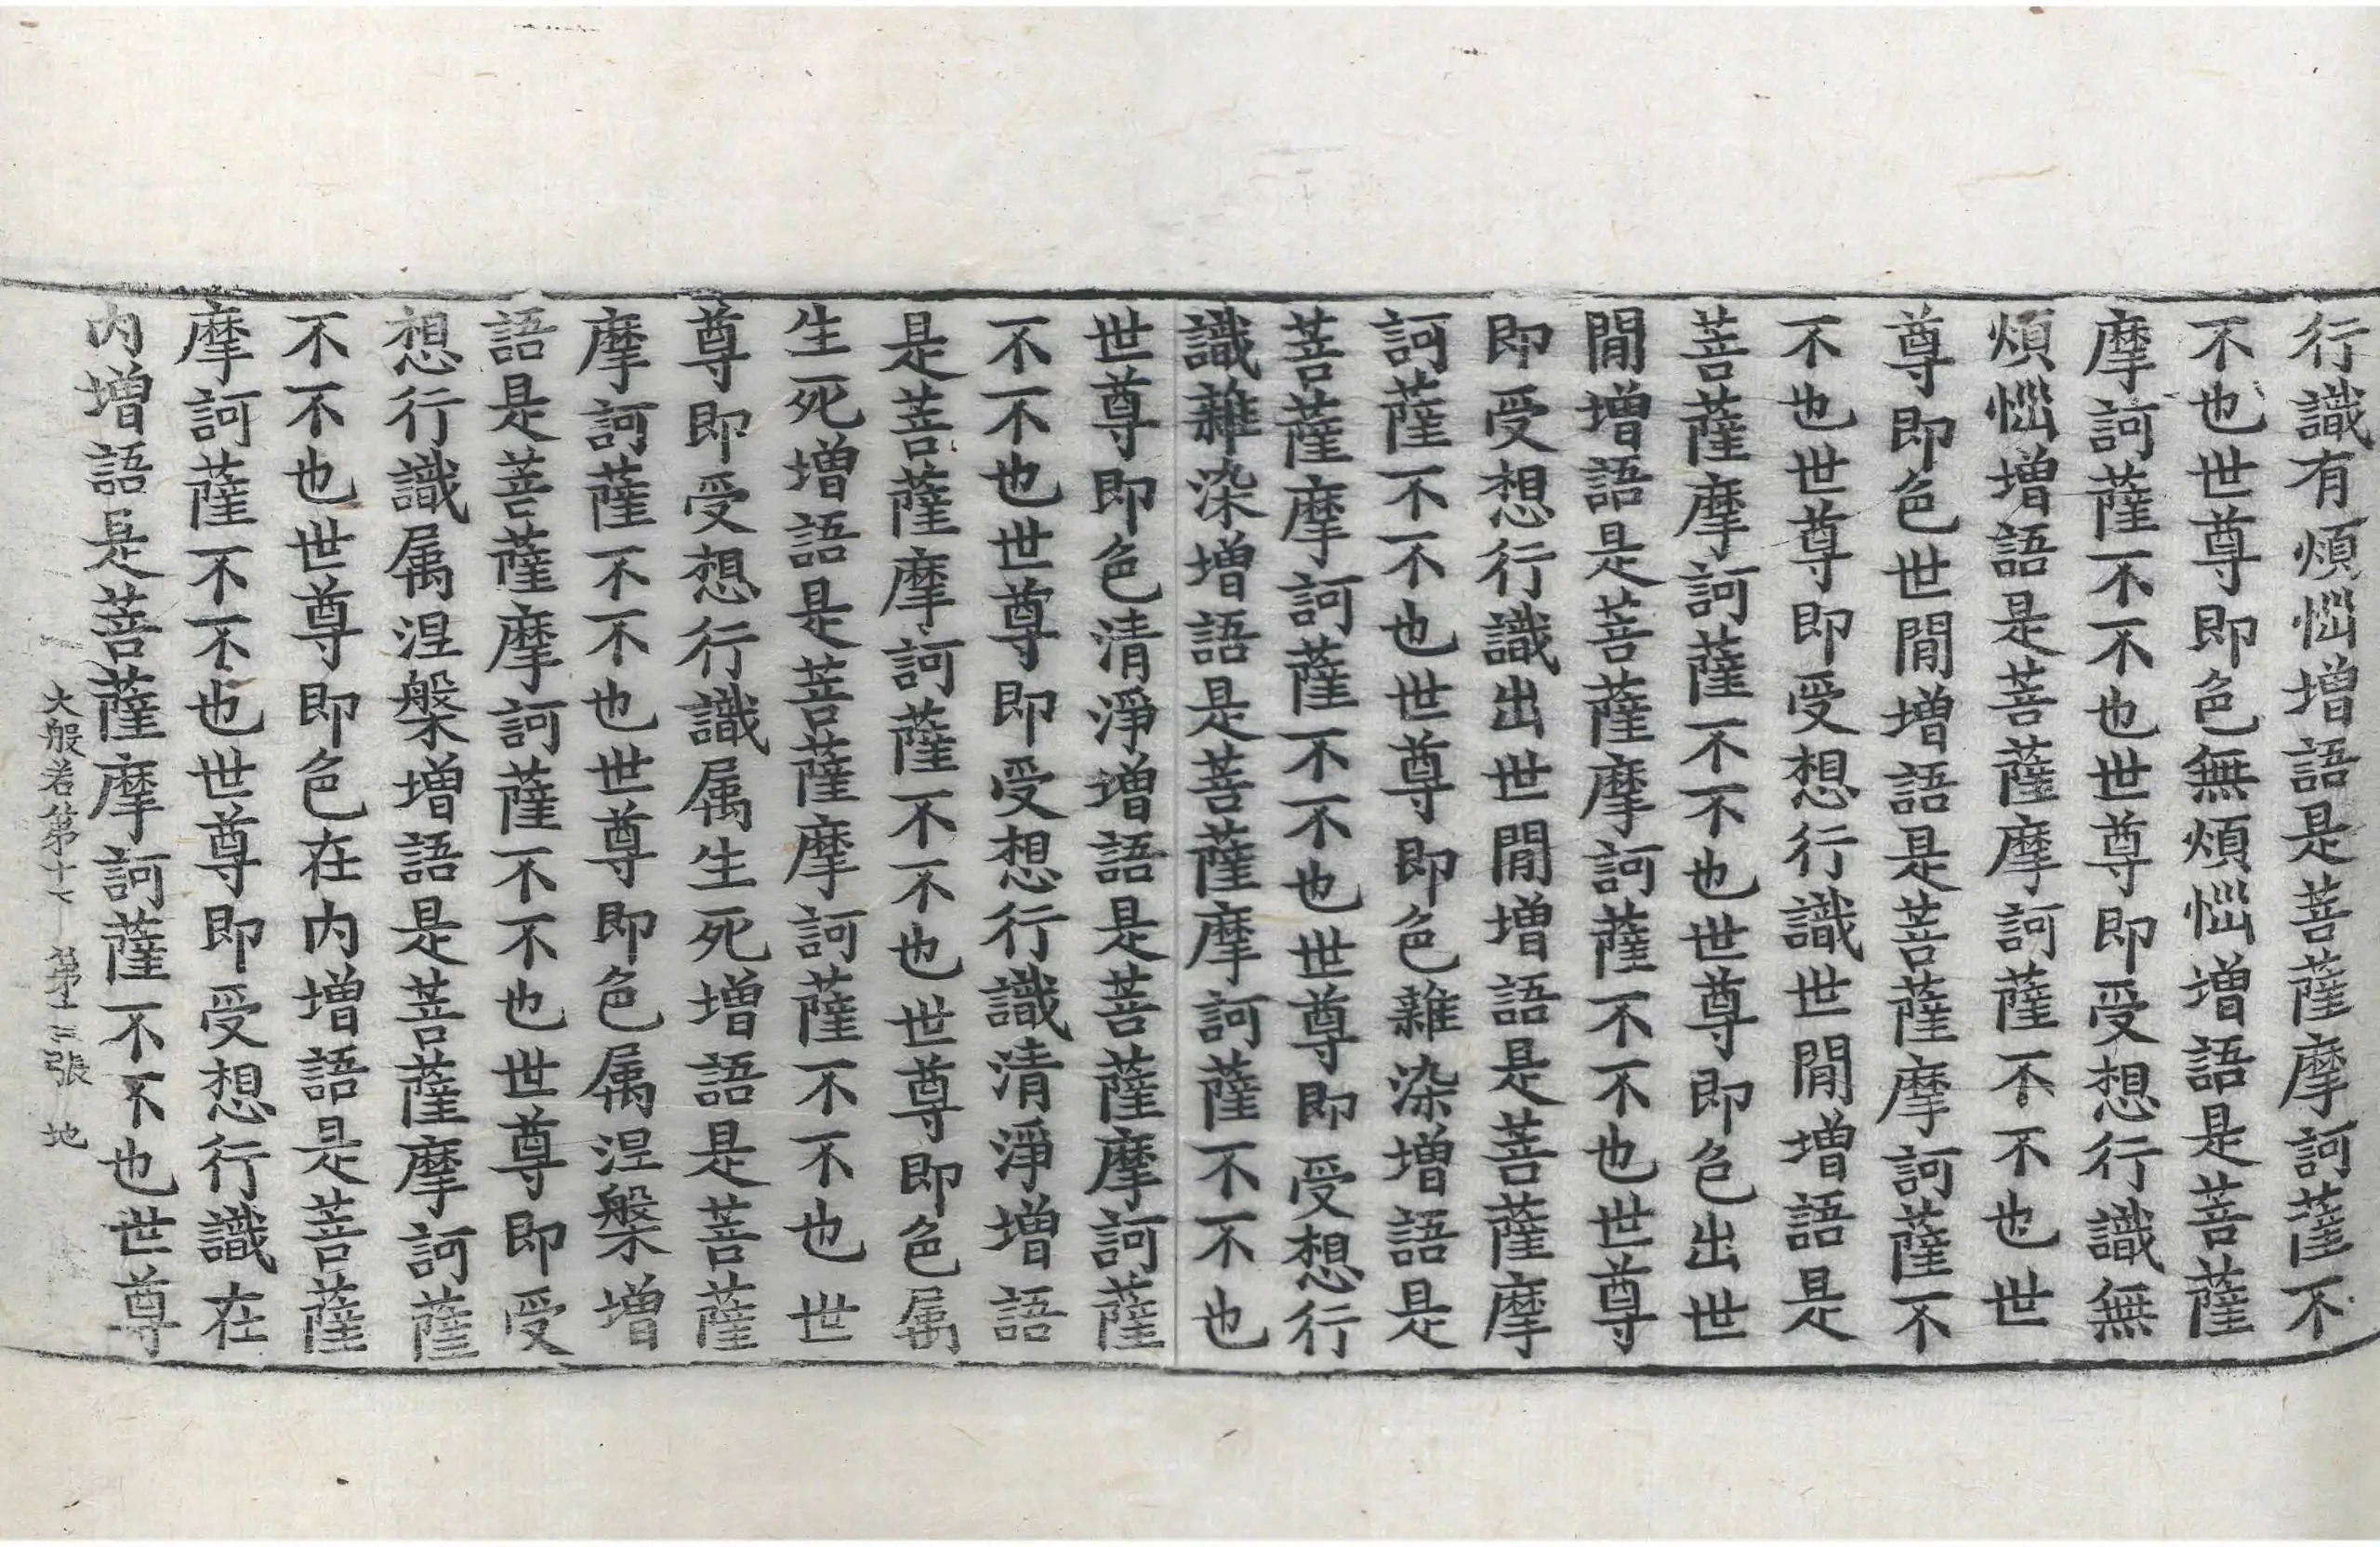 行識有煩惱增語是菩薩摩訶薩不
不也世尊即色無煩惱增語是菩薩
摩訶薩不不也世尊即受想行識無
煩惱增語是菩薩摩訶薩不不也世
尊即色世閒增語是菩薩摩訶薩不
不也世尊即受想行識世閒增語是
菩薩摩訶薩不不也世尊即色出世
閒增語是菩薩摩訶薩不不也世尊
即受想行識出世閒增語是菩薩摩
訶薩不不也世尊即色雜染增語是
菩薩摩訶薩不不也世尊即受想行
識雜染增語是菩薩摩訶薩不不也
世尊即色清淨增語是菩薩摩訶薩
不不也世尊即受想行識清淨增語
是菩薩摩訶薩不不也世尊即色属
生死增語是菩薩摩訶薩不不也世
尊即受想行識属生死增語是菩薩
摩訶薩不不也世尊即色属涅槃增
語是菩薩摩訶薩不不也世尊即受
想行識属涅槃增語是菩薩摩訶薩
不不也世尊即色在内增語是菩薩
摩訶薩不不也世尊即受想行識在
内增語是菩薩摩訶薩不不也世尊
大般若第十七 第十三張 地